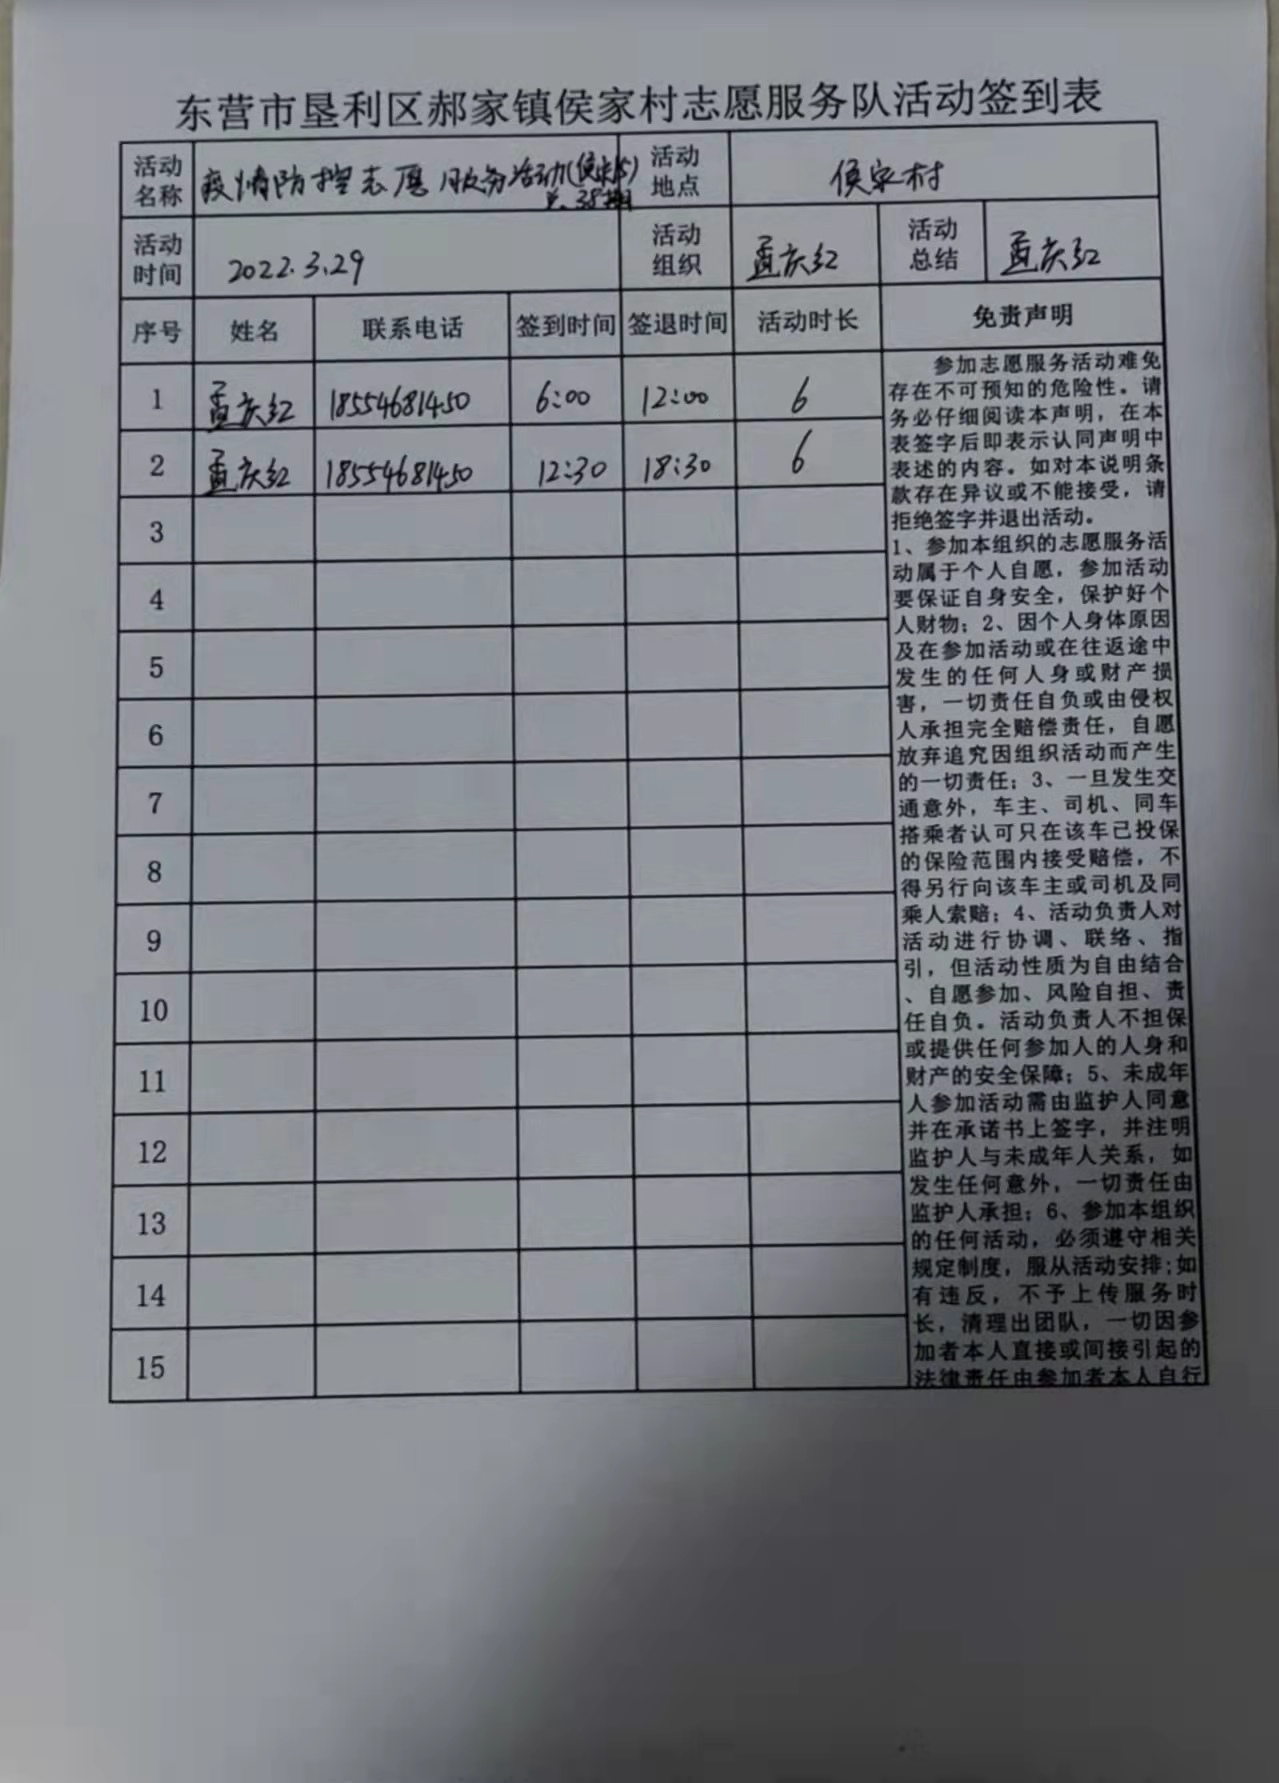 东营市垦利区郝家镇侯家村志愿服务队活动签到表
活动名称 疫情防控志愿服务活动(侯家村) 总38期 活动地点 侯家村
活动时间 2022.3.29 活动组织 孟庆红 活动总结 孟庆红
序号 姓名 联系电话 签到时间 签退时间 活动时长 免责声明
1 孟庆红 18554681450 6:00 12:00 6
2 孟庆红 18554681450 12:30 18:30 6
3
4
5
6
7
8
9
10
11
12
13
14
15
参加志愿服务活动难免
存在不可预知的危险性。请
务必仔细阅读本声明，在本
表签字后即表示认同声明中
表述的内容。如对本说明条
款存在异议或不能接受，请
拒绝签字并退出活动。
1、参加本组织的志愿服务活
动属于个人自愿，参加活动
要保证自身安全，保护好个
人财物；2、因个人身体原因
及在参加活动或在往返途中
发生的任何人身或财产损
害，一切责任自负或由侵权
人承担完全赔偿责任，自愿
放弃追究因组织活动而产生
的一切责任；3、一旦发生交
通意外，车主、司机、同车
搭乘者认可只在该车已投保
的保险范围内接受赔偿，不
得另行向该车主或司机及同
乘人索赔；4、活动负责人对
活动进行协调、联络、指
引，但活动性质为自由结合
、自愿参加、风险自担、责
任自负。活动负责人不担保
或提供任何参加人的人身和
财产的安全保障；5、未成年
人参加活动需由监护人同意
并在承诺书上签字，并注明
监护人与未成年人关系，如
发生任何意外，一切责任由
监护人承担；6、参加本组织
的任何活动，必须遵守相关
规定制度，服从活动安排;如
有违反，不予上传服务时
长，清理出团队，一切因参
加者本人直接或间接引起的
法律责任由参加者本人自行